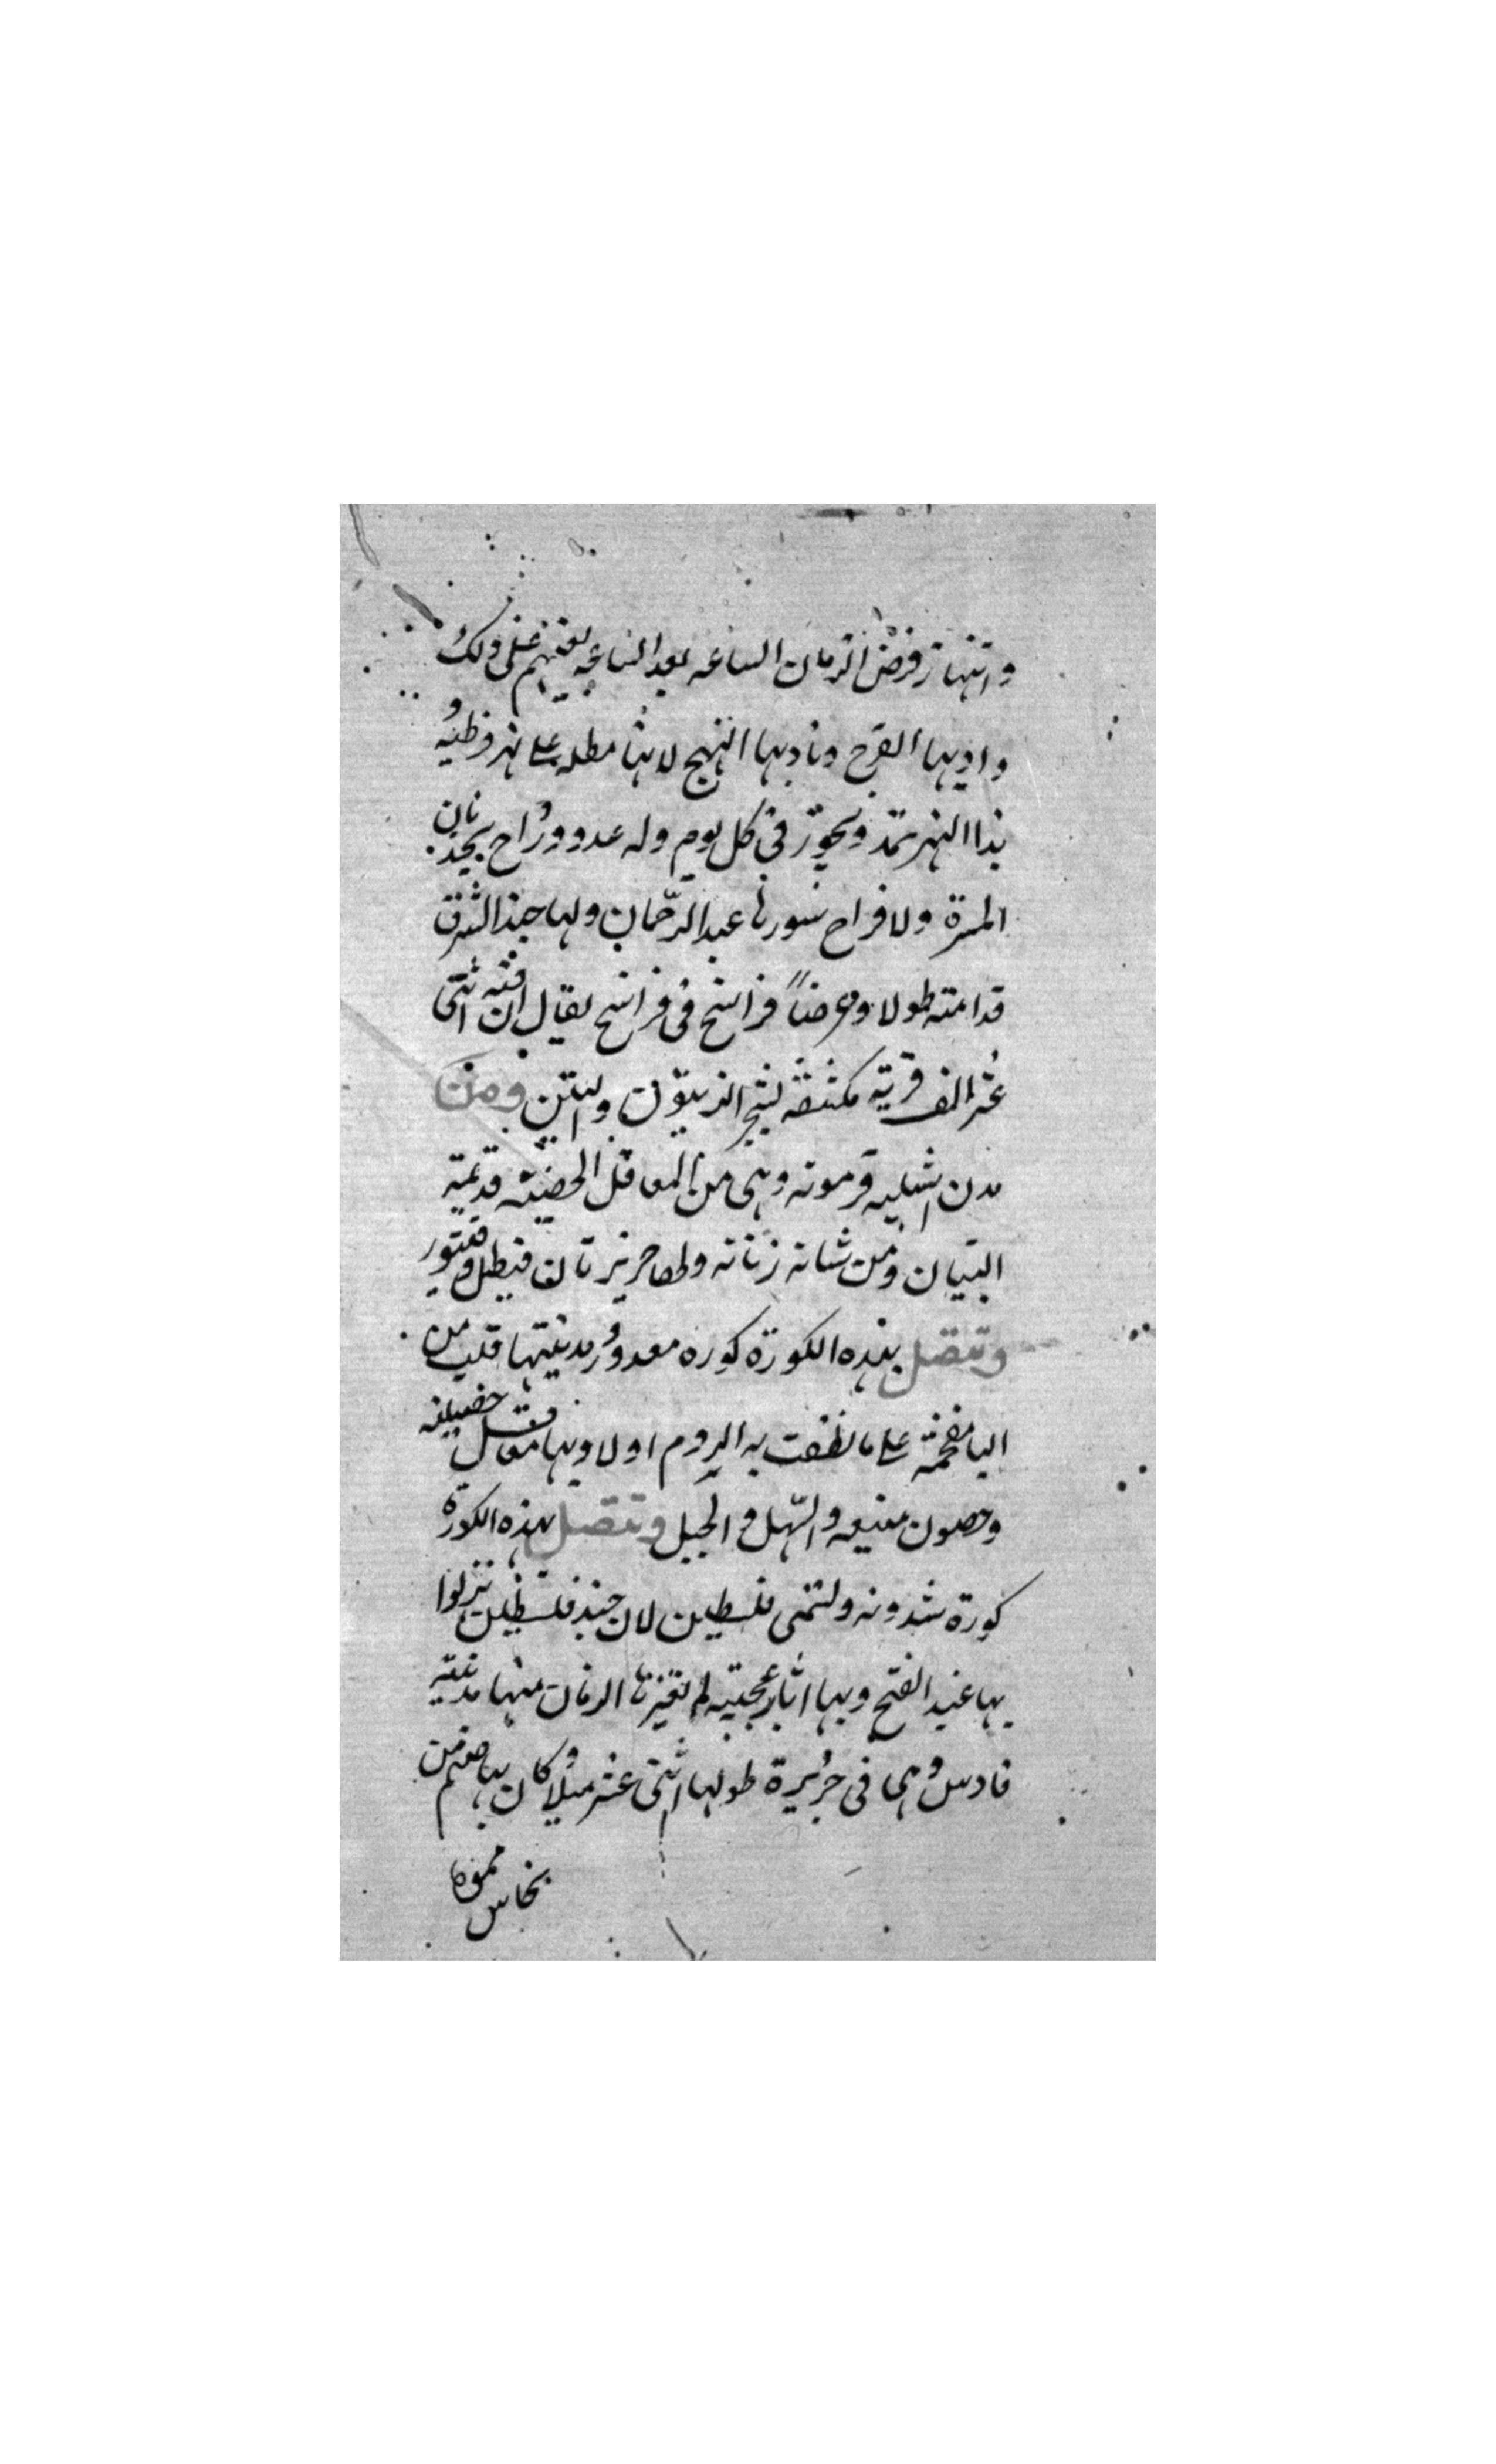 وانتهاز فرض الزمان الساعه بعد الساعه يعينهم على ذلك
واديها الفرج وناديها البهج لانها مطله على نهر قرطبه
هذا النهر يمد ويجوز فى كل يوم وله غدو ورواح يجذبان
المسرة والافراح سورها عبد الرحمان ولها جند الشرق
قد امتد طولا وعرضاً فراسخ فى فراسخ يقال ان فيه اثنى
عشر الف قرية مكتنفه بشجر الزيتون والتين ومن
مدن اشبليه قرمونه وهى من المعاقل الحصينه قديمة
البنيان ومن شانه زناته
وتتصل بهذه الكورة كوره معدور ومدينتها قلب من
اليا مفخمة على ما نطقت به الروم اولا وبها معاقل حصينه
وحصون منيعه والسهل والجبل وتتصل بهذه الكورة
كورة شدونه وتسمى فلسطين لان جند فلسطين نزلوا
بها عند الفتح وبها اثار عجيبه لم تغيرها الزمان منها مدينة
قادس وهى فى جزيرة طولها اثنى عشر ميلا كان بها صنم من
نحاس مموه